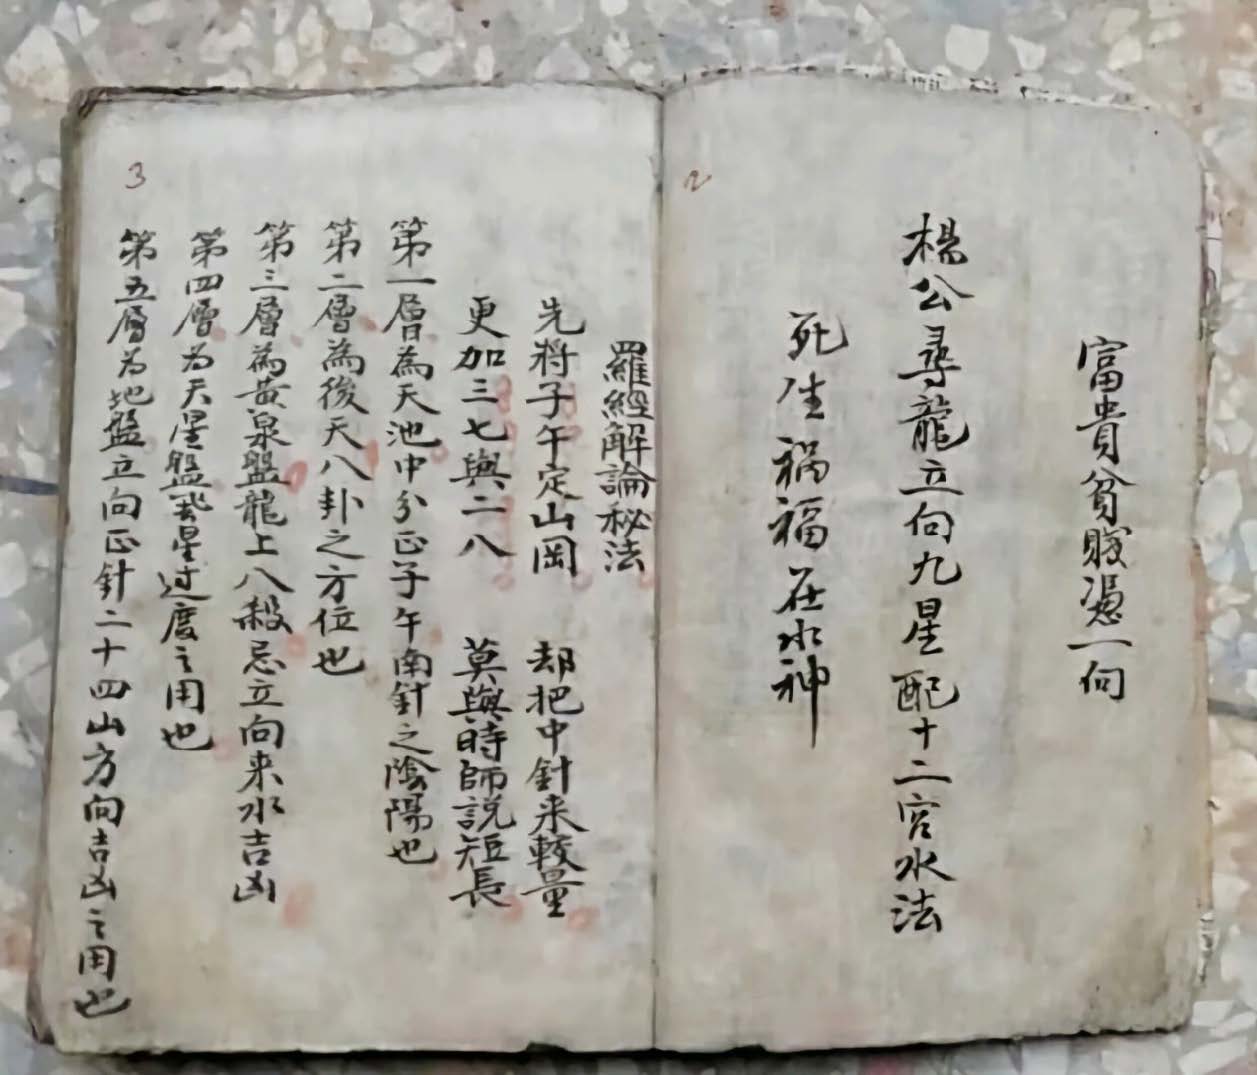 2
富貴貧賤憑一向
楊公尋龍立向九星配十二宮水法
死生禍福在水神
3
羅經解論秘法
先將子午定山岡　却把中針来較量
更加三七與二八　莫與時師説短長
第一層為天池中分正子午南針之陰陽也
第二層為後天八卦之方位也
第三層為黄泉盤龍上八殺忌立向来水吉凶
第四層为天星盤星过度之用也
第五層为地盤立向正針二十四山方向吉凶之用也